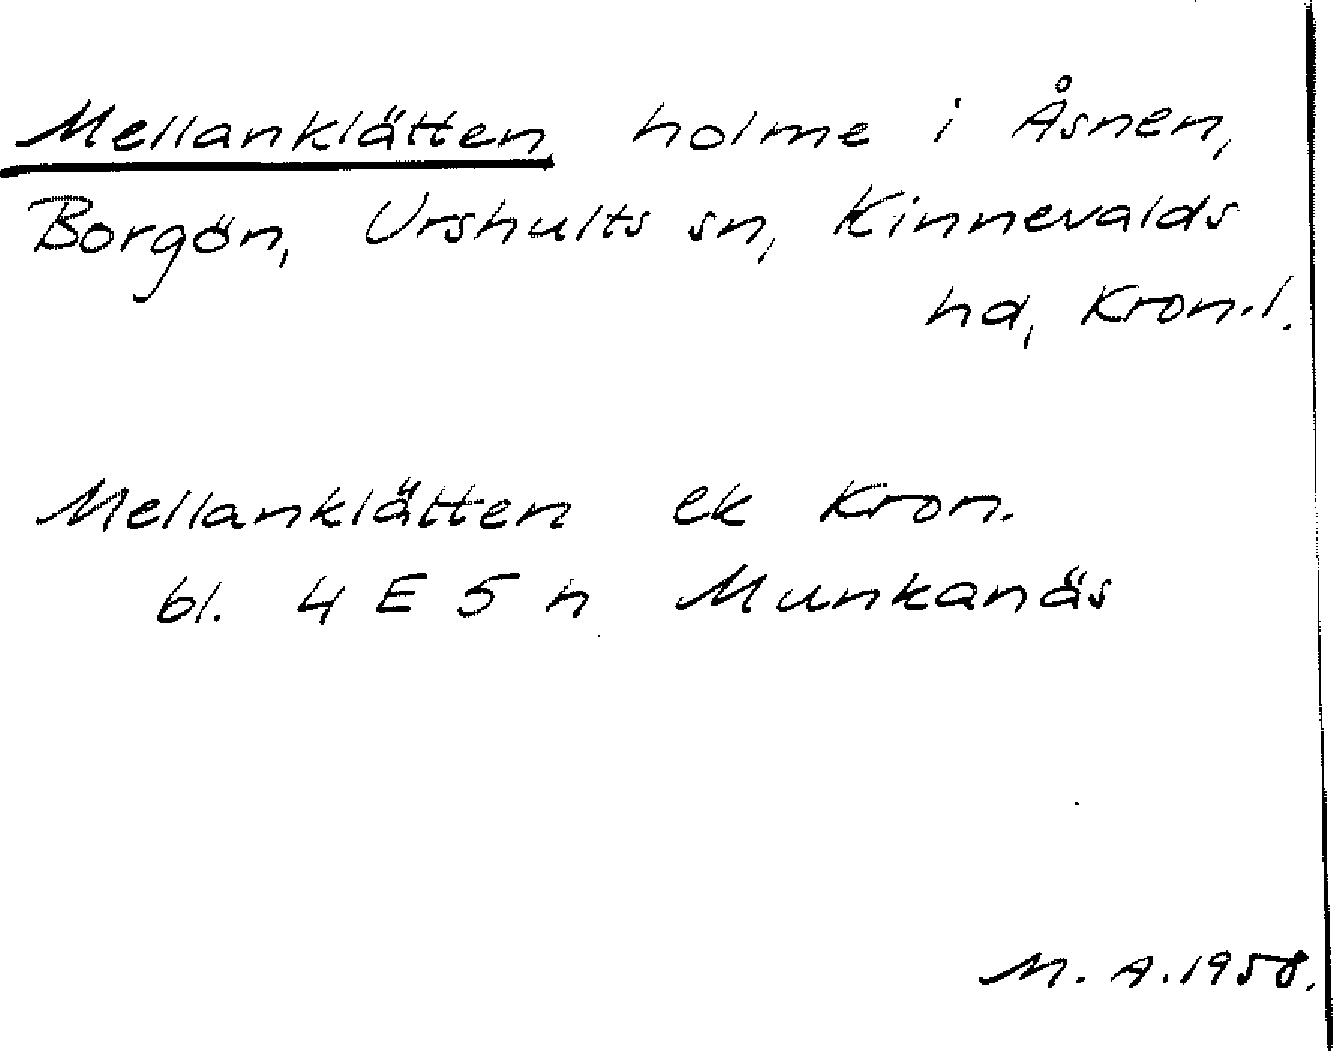 Mellanklätten holme i Åsnen,
Borgön, Urshults sn, Kinnevalds
hd, Kron.l.
Mellanklätten ek Kron.
bl. 4 E 5 h Munkanäs
M. A. 1958.